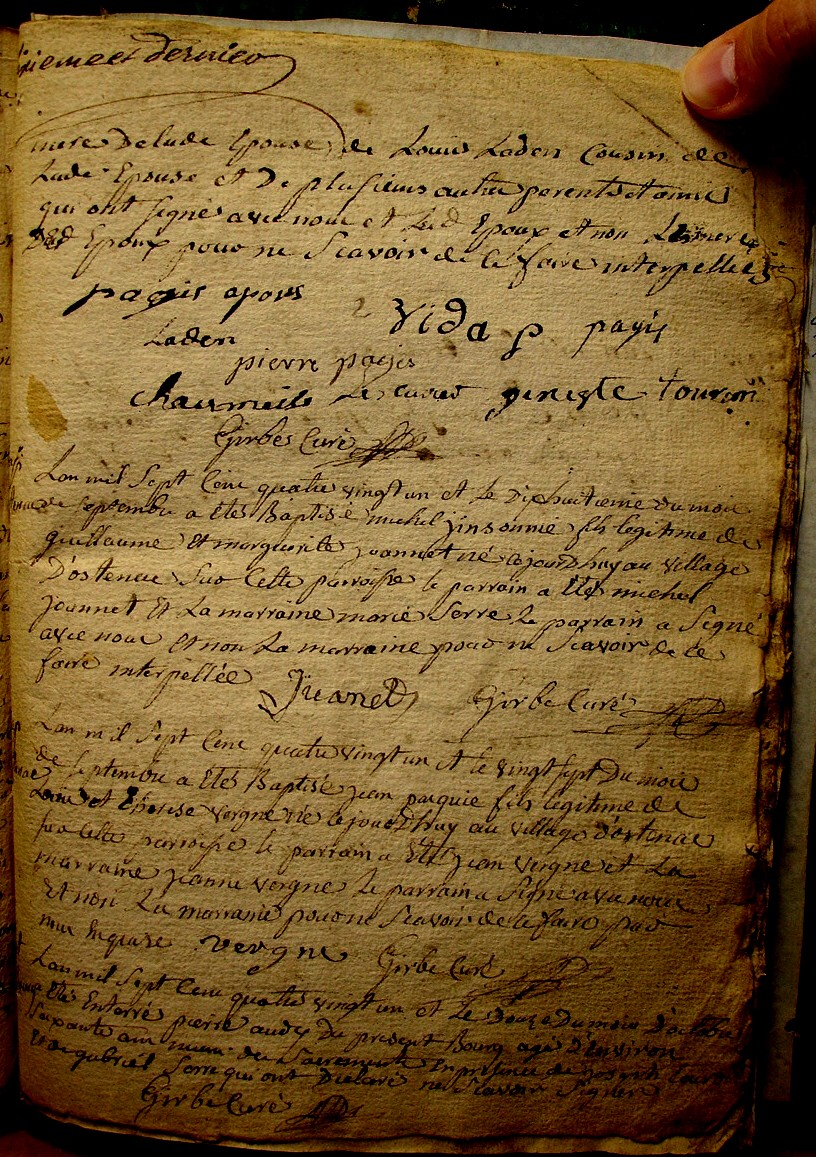 dernier
mere de lade Epouse, de Louis Laden Cousin de
Lade Epouse et De plusieurs autre parents et amis
qui ont signé avec nous et Led Epoux et non La mere
Dud Epoux pour ne scavoir de ce faire interpellee
pagis apous Vidap pagis
Laden
pierre pagis
Chaumeils geneste touron
Girbes Curé
Lan mil sept Cens quatre vingt un et le Dixhuitieme du mois
de septembre a Eté Baptisé michel jinsonnie fils legitime de
guillaume Et marguerite joannet né cejourdhuy au village
D'ostenac Sur Cette parroisse le parrain a Eté michel
joannet Et La marraine marie Serre Le parrain a Signé
avec nous et non La marraine pour ne Scavoir de ce
faire interpellée Juanet Girbe Curé
Lan mil Sept Cens quatre vingt un et le vingt sept Du mois
de septembre a Eté Baptisé jean pasquie fils legitime de
Louis et therese vergne né cejourdhuy au village d'ostenac
sur Cette parroisse le parrain a Eté jean vergne et La
marraine jeanne vergne le parrain a Signé avec nous
Et non La marraine pour ne Scavoir de ce faire par
nous Enquise vergne Girbe Curé
Lan mil Sept Cens quatre vingt un et Le Douze Du mois D'octobre
a Eté Enterré pierre audy du present Bourg agé D'Environ
Soixante ans muni des Sacrements En presence de joseph
Et de gabriel Serre qui ont Declaré ne Scavoir Signer
Girbe Curé